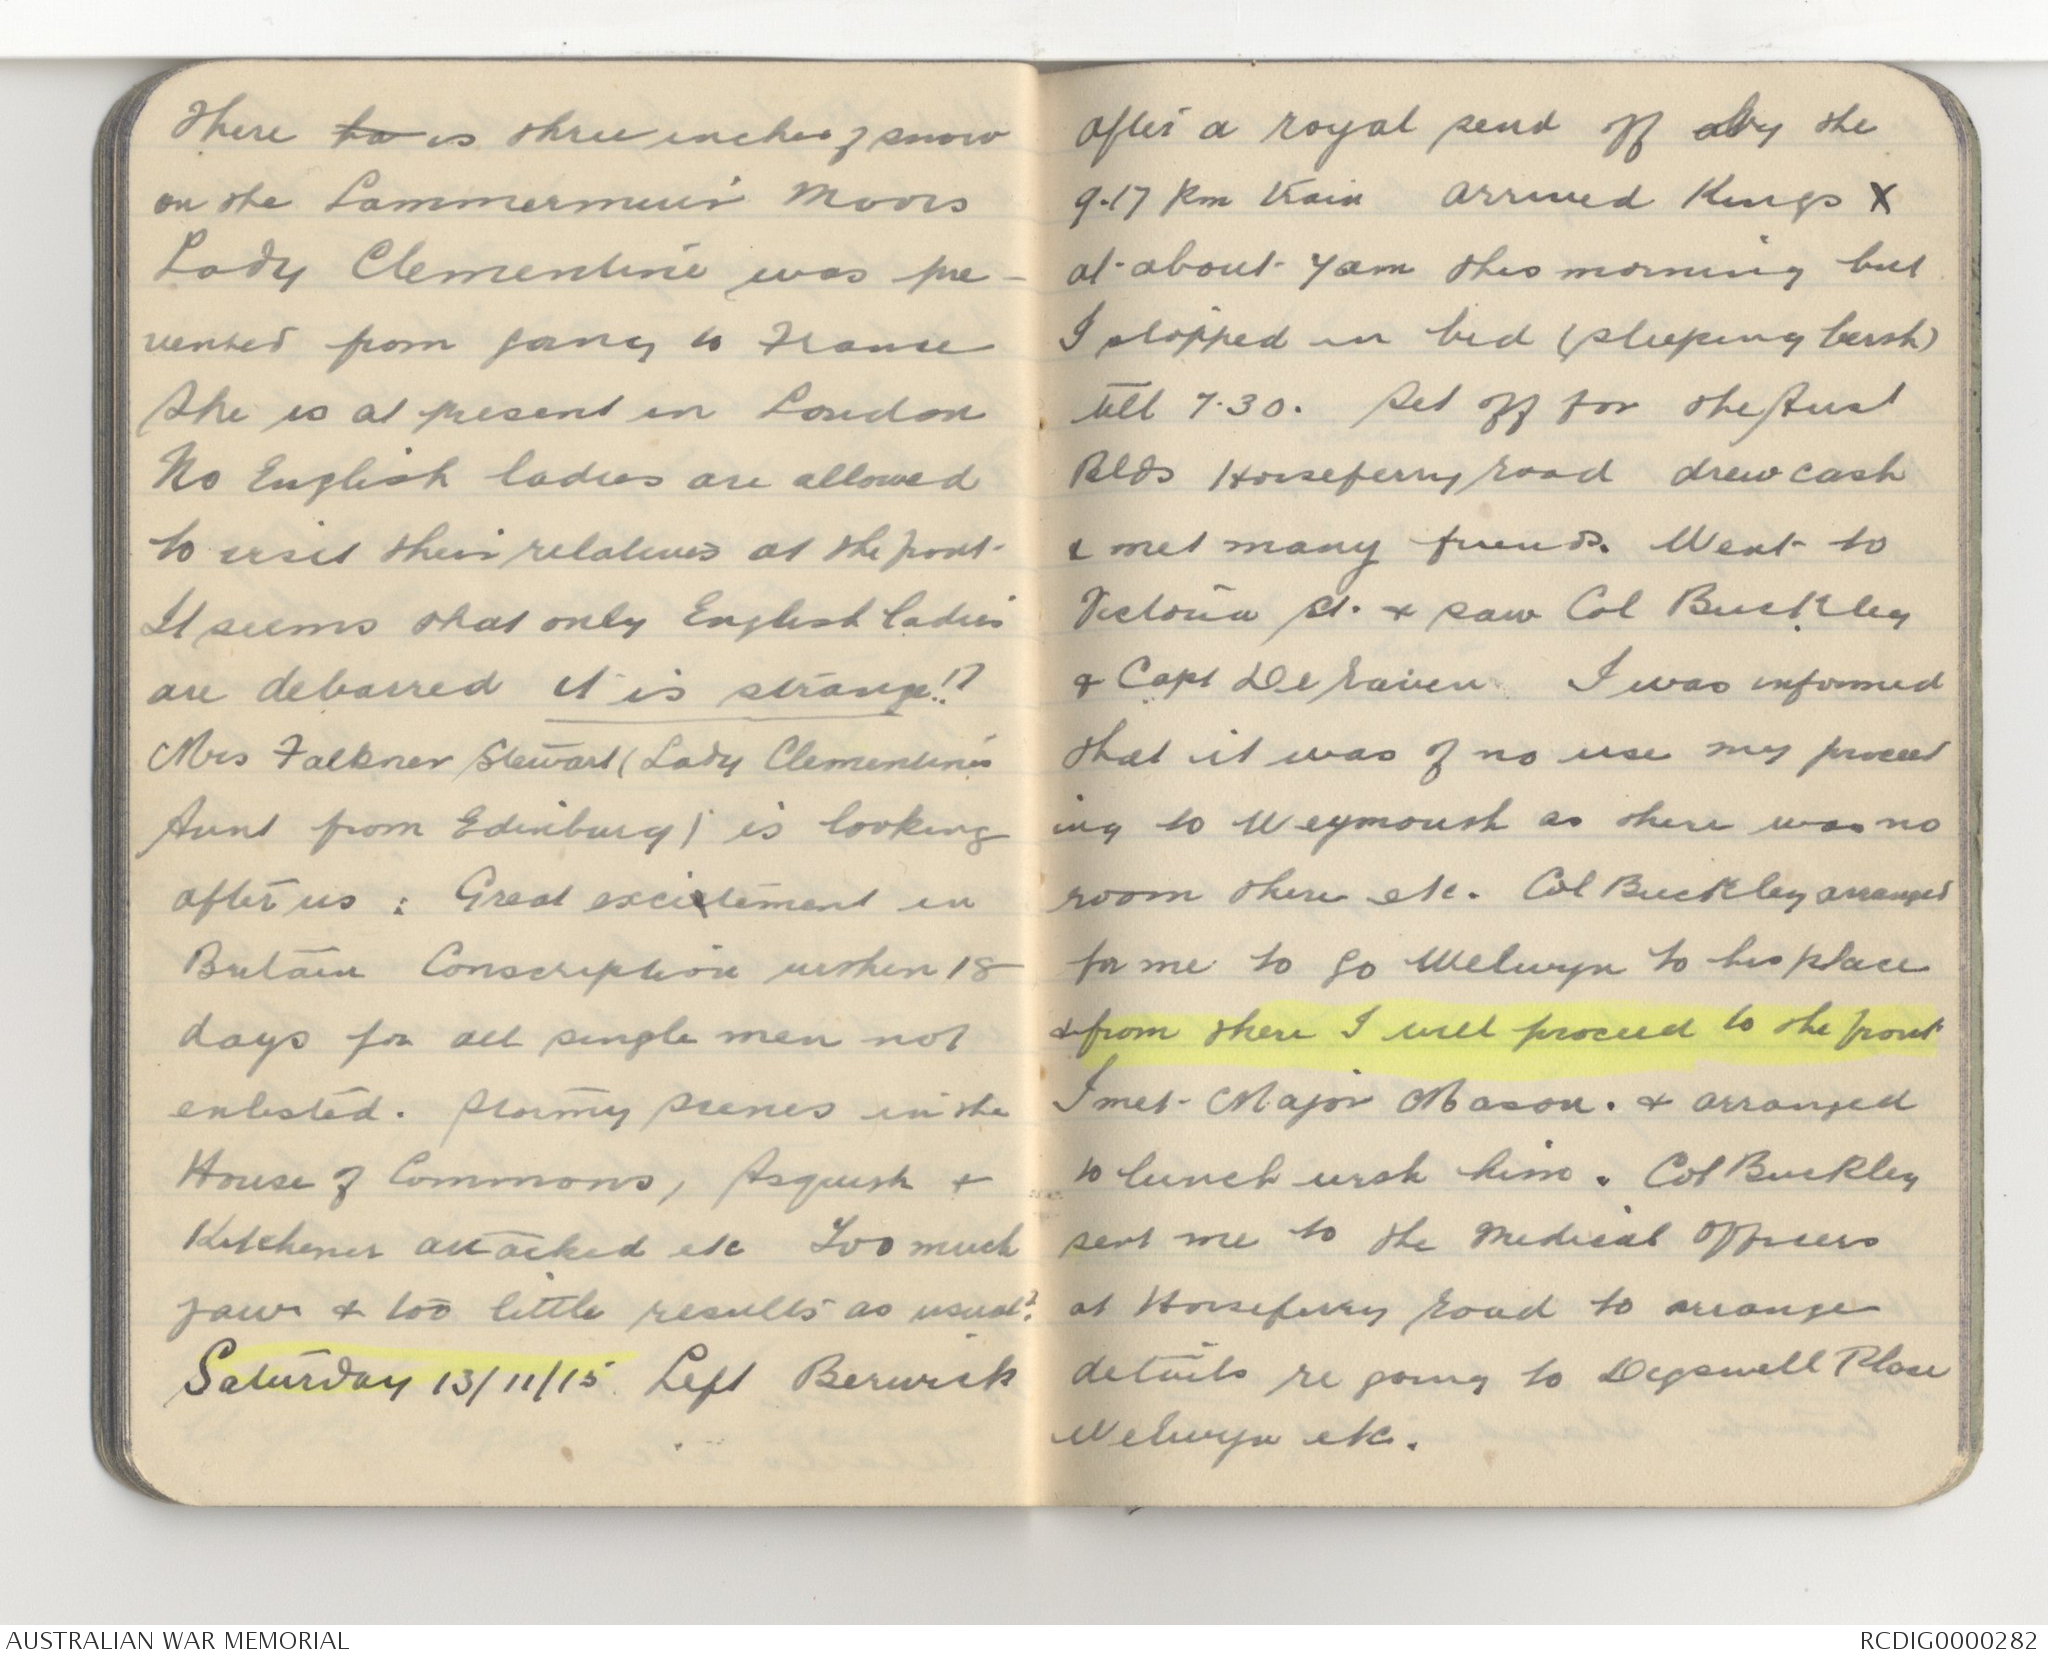 There ta is three inches of snow
on the Lammermuir Moors
Lady Clementine was pre-
vented from going to France
She is at present in London
No English ladies are allowed
to visit their relatives at the front-
It seems that only English ladies
are debarred it is strange!?
Mrs Falkner Stewart (Lady Clementine's
Aunt from Edinburg) is looking
after us : Great excitement in
Britain Conscription within 18
days for all single men not
enlisted. Stormy scenes in the
House of Commons, Asquith +
Kitchener attacked etc Too much
jaw & too little results as usual?
Saturday 13/11/15 Left Berwick
after a royal send off by the
9.17 pm train arrived Kings X
at about 7am this morning but
I stopped in bed (sleeping berth)
till 7.30. Set off for the Aust
Blds Horseferry road drew cash
& met many friends. Went to
Victoria St. & saw Col Buckley
& Capt De Raven I was informed
that it was of no use my proceed
ing to Weymouth as there was no
room there etc. Col Buckley arranged
for me to go Welwyn to his place
& from there I will proceed to the front
I met Major Mason. & arranged
to lunch with him. Col Buckley
sent me to the Medical Officers
at Horseferry road to arrange
details re going to Digswell Place
Welwyn etc.
AUSTRALIAN WAR MEMORIAL
RCDIG0000282